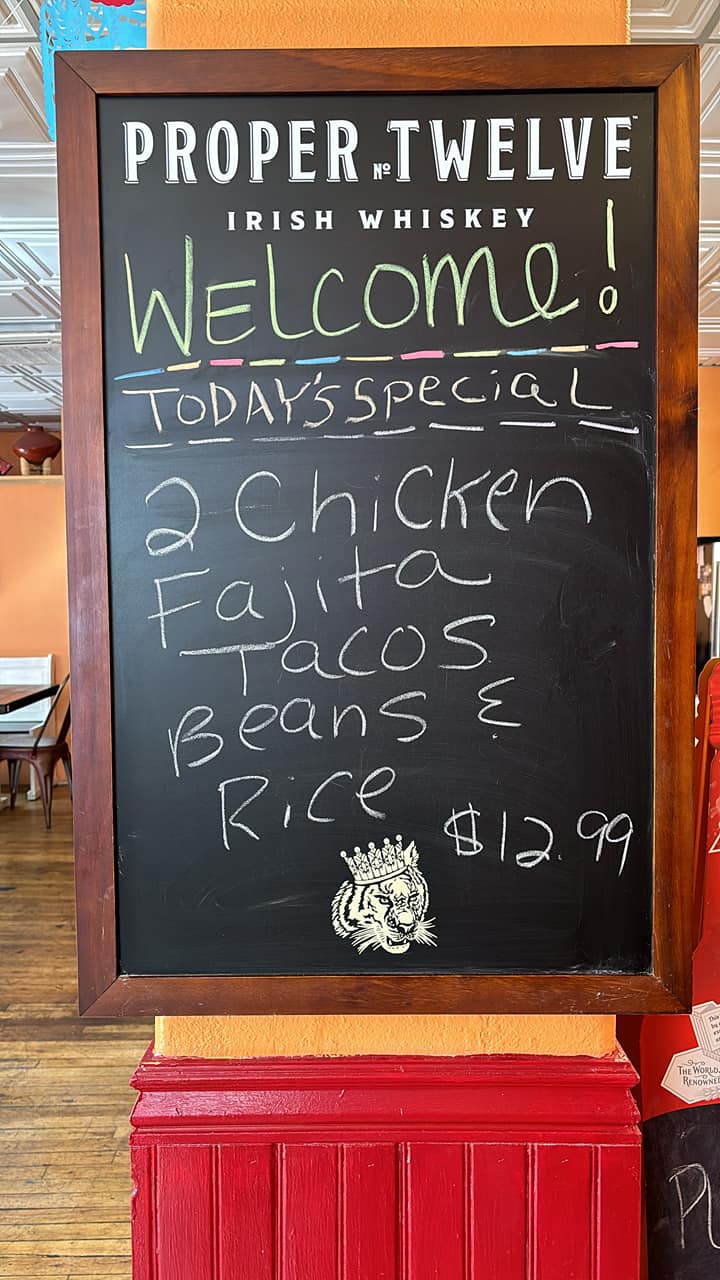 PROPER No. TWELVE™
IRISH WHISKEY
WELCOME!
TODAY'S SPeciaL
2 Chicken
Fajita
Tacos
Beans &
Rice
$12.99
THE WORLD
RENOWNED